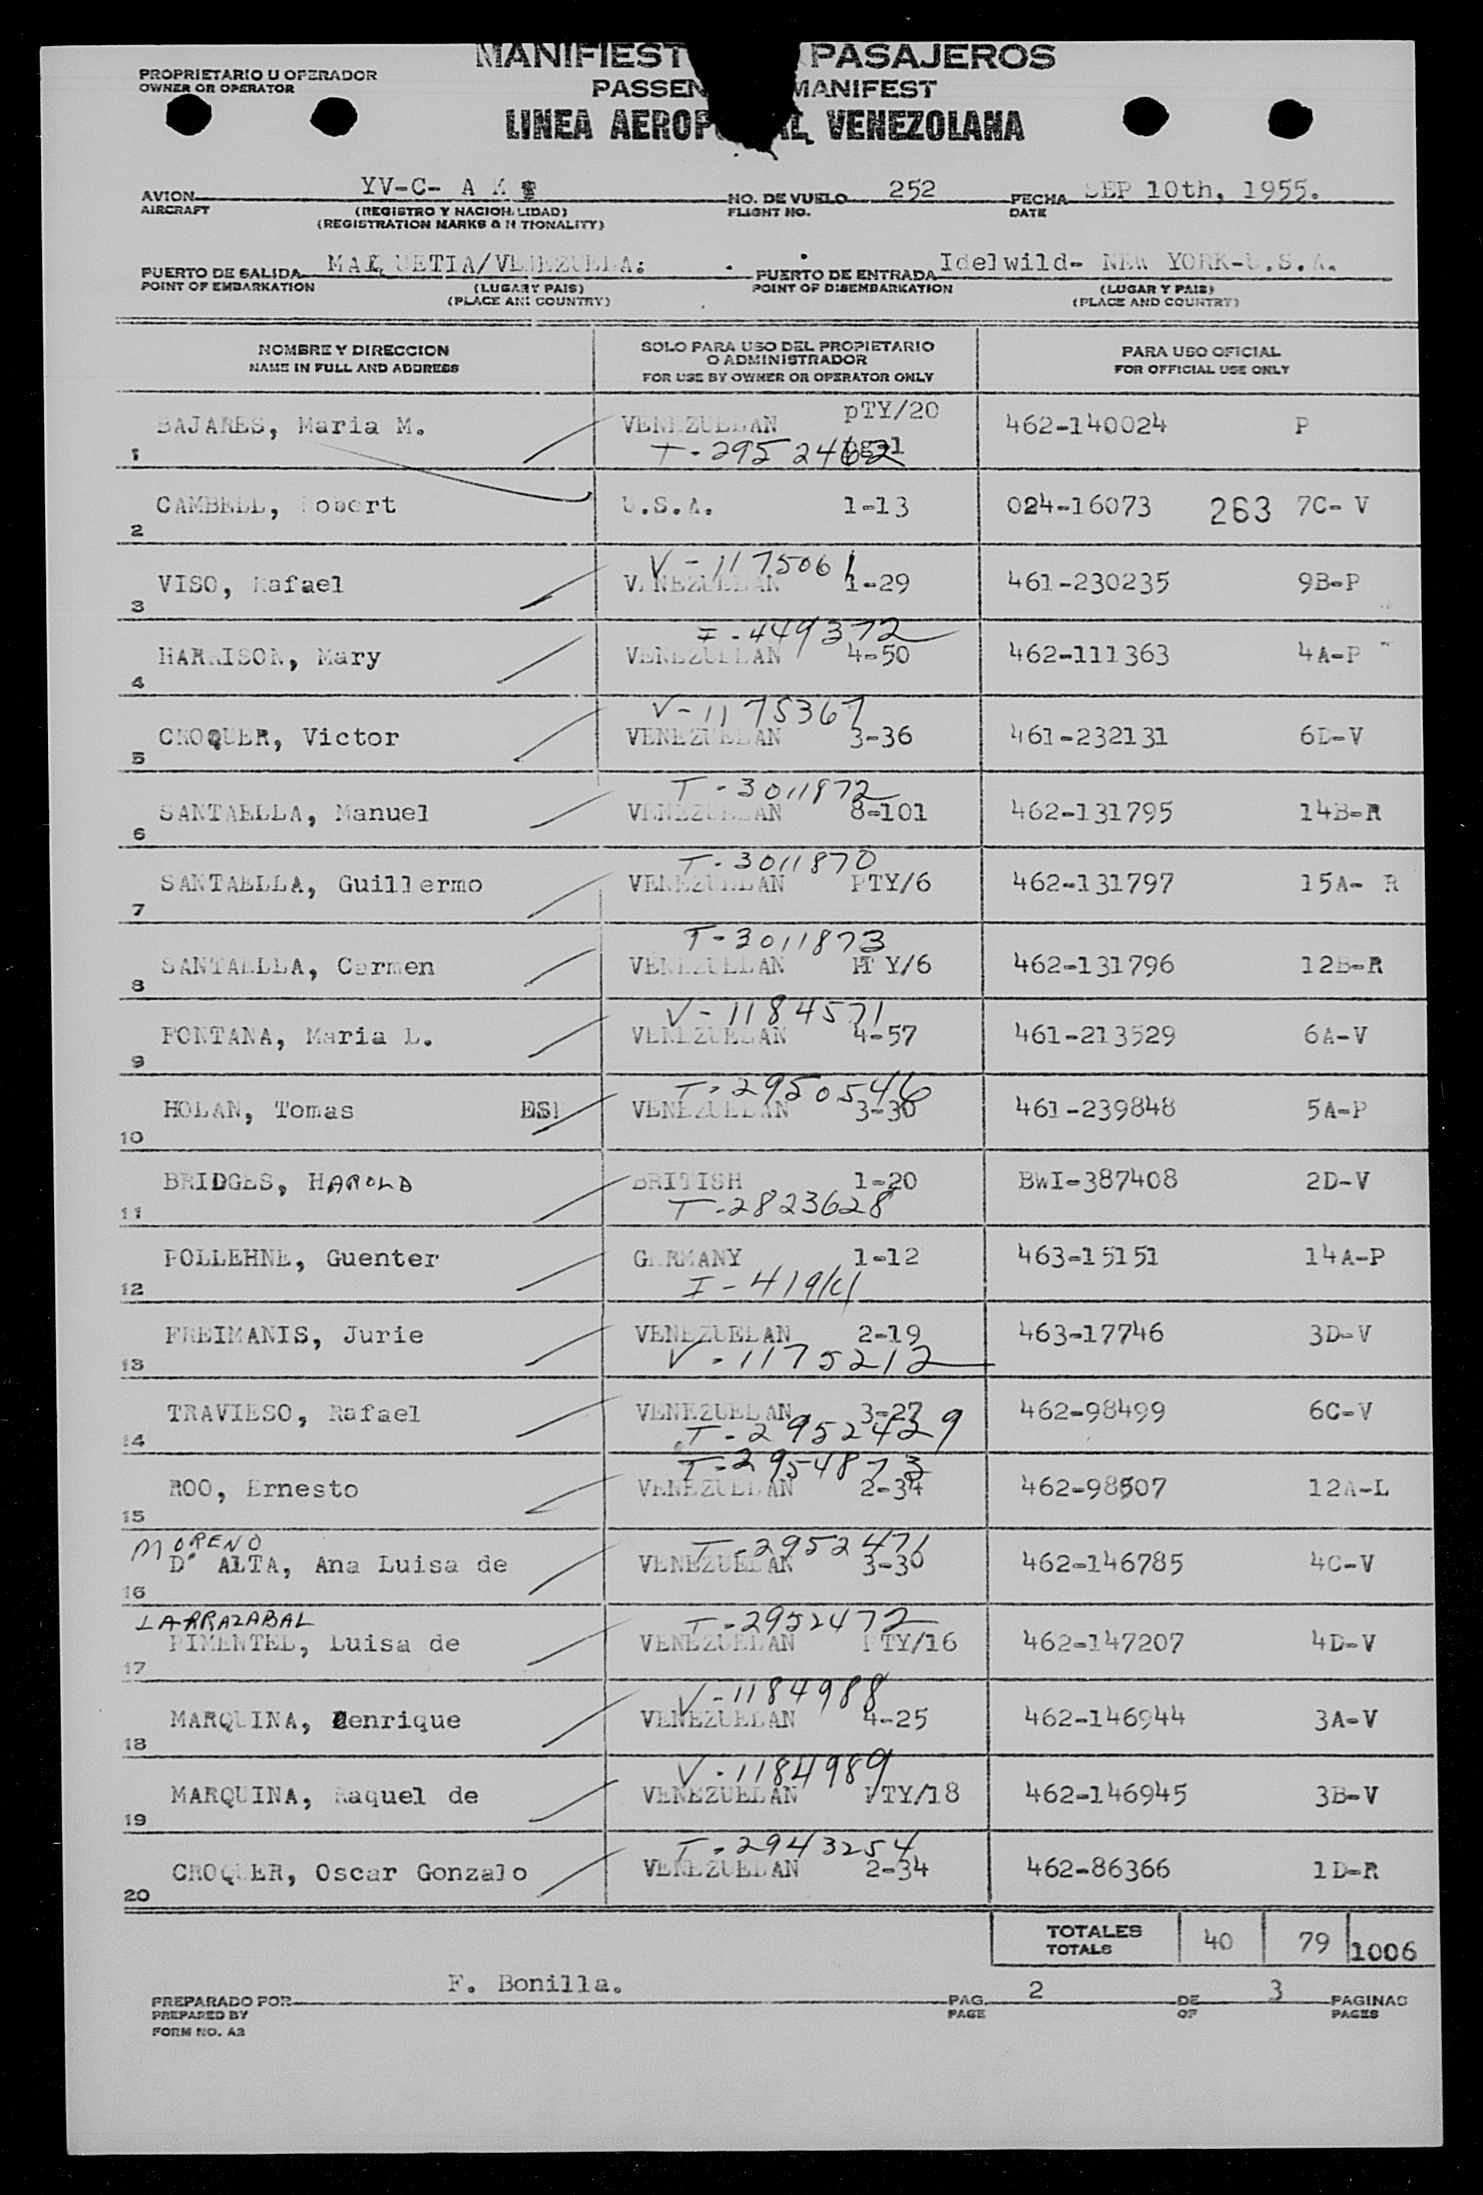 PASAJEROS
PROPRIETARIO U OPERADOR
OWNER OR OPERATOR
MANIFEST
LINEA VENEZOLANA
AVION YV-C- A NO. DE VUELO 252 FECHA SEP 10th, 1955.
AIRCRAFT (REGISTRO Y NACIONALIDAD) FLIGHT NO. DATE
(REGISTRATION MARKS & NATIONALITY)
PUERTO DE SALIDA MAIQUETIA/VENEZUELA: PUERTO DE ENTRADA Idelwild- NEW YORK-U.S.A.
POINT OF EMBARKATION (LUGAR Y PAIS) POINT OF DISEMBARKATION (LUGAR Y PAIS)
(PLACE AND COUNTRY) (PLACE AND COUNTRY)
NOMBRE Y DIRECCION SOLO PARA USO DEL PROPIETARIO PARA USO OFICIAL
O ADMINISTRADOR
NAME IN FULL AND ADDRESS FOR USE BY OWNER OR OPERATOR ONLY FOR OFFICIAL USE ONLY
1 BAJARES, Maria M. VENEZUELAN pTY/20 462-140024 P
T-2952462
2 CAMBELL, Robert U.S.A. 1-13 024-16073 263 7C- V
V-1175061
3 VISO, Rafael VENEZUELAN 1-29 461-230235 9B-P
I-449372
4 HARRISON, Mary VENEZUELAN 4-50 462-111363 4A-P
V-1175367
5 CROQUER, Victor VENEZUELAN 3-36 461-232131 6D-V
T-3011872
6 SANTAELLA, Manuel VENEZUELAN 8-101 462-131795 14B-R
T-3011870
7 SANTAELLA, Guillermo VENEZUELAN PTY/6 462-131797 15A- R
T-3011873
8 SANTAELLA, Carmen VENEZUELAN PT Y/6 462-131796 12B-R
V-1184571
9 FONTANA, Maria L. VENEZUELAN 4-57 461-213529 6A-V
T-2950546
10 HOLAN, Tomas VENEZUELAN 3-30 461-239848 5A-P
11 BRIDGES, HAROLD BRITISH 1-20 BWI-387408 2D-V
T-2823628
12 POLLEHNE, Guenter GERMANY 1-12 463-15151 14A-P
13 FREIMANIS, Jurie VENEZUELAN 2-19 463-17746 3D-V
V-1175212
14 TRAVIESO, Rafael VENEZUELAN 3-27 462-98499 6C-V
T-2952429
T-2954873
15 ROO, Ernesto VENEZUELAN 2-34 462-98507 12A-L
MORENO T-2952471
16 D' ALTA, Ana Luisa de VENEZUELAN 3-30 462-146785 4C-V
LARRAZABAL T-2952472
17 PIMENTEL, Luisa de VENEZUELAN PTY/16 462-147207 4D-V
V-1184988
18 MARQUINA, Henrique VENEZUELAN 4-25 462-146944 3A-V
V-1184989
19 MARQUINA, Raquel de VENEZUELAN PTY/18 462-146945 3B-V
T-2943254
20 CROQUER, Oscar Gonzalo VENEZUELAN 2-34 462-86366 1D-R
TOTALES 40 79 1006
TOTALS
PREPARADO POR F. Bonilla. PAG. 2 DE 3 PAGINAS
PREPARED BY PAGE OF PAGES
FORM NO. A3